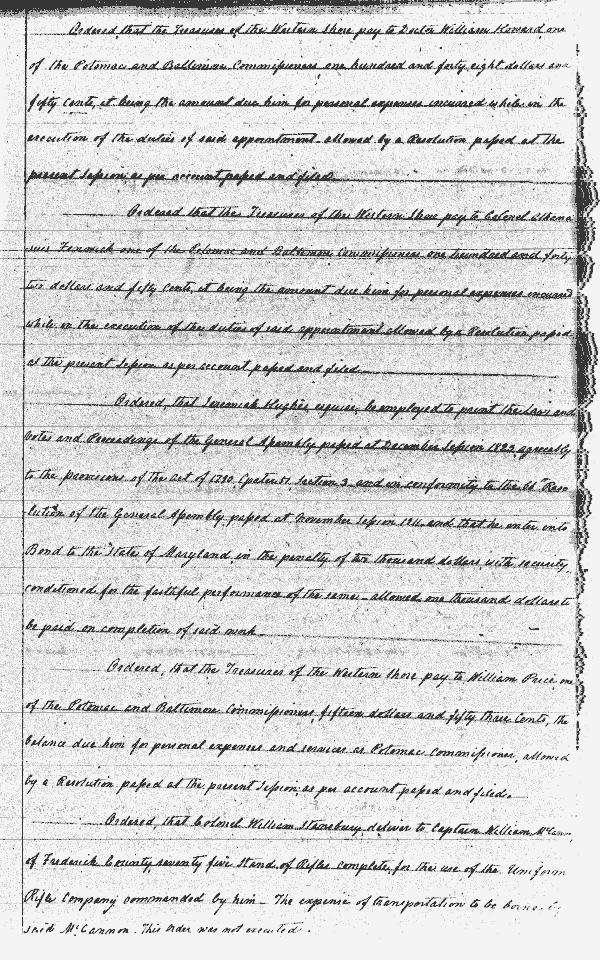 Ordered, that the Treasurer of the Western Shore pay to Doctor William Howard one
of the Potomac and Baltimore Commissioners one hundred and forty eight dollars and
fifty cents, it being the amount due him for personal expenses incurred while in the
execution of the duties of said appointment allowed by a Resolution passed at the
present Session as per account passed and filed
Ordered that the Treasurer of the Western Shore pay to Colonel Athana
sius Fenwick one of the Potomac and Baltimore Commissioners one hundred and forty
two dollars and fifty Cents, it being the amount due him for personal expenses incurred
while in the execution of the duties of said appointment allowed by a Resolution passed
at the present Session as per account passed and filed
Ordered, that Jeremiah Hughes esquire, be employed to print the Laws and
Votes and Proceedings of the General Assembly passed at December Session 1823, agreeably
to the provisions of the Act of 1790 Chapter 51, Section 3 and in conformity to the Reso
lution of the General Assembly, passed at November Session and that he enter into
Bond to the State of Maryland in the penalty of ten thousand dollars with security,
conditioned for the faithful performance of the same allowed one thousand dollars to
be paid on completion of said work
Ordered, that the Treasurer of the Western Shore pay to William Price one
of the Potomac and Baltimore Commissioners, fifteen dollars and fifty three Cents, the
balance due him for personal expenses and services as Potomac Commissioner, allowed
by a Resolution passed at the present Session as per account passed and filed.
Ordered, that Colonel William Stansbury deliver to Captain William McCan
of Frederick County, seventy five Stand of Rifles complete, for the use of the Uniform
Rifle Company commanded by him – The expense of transportation to be borne by
said McCannon. This order was not executed.